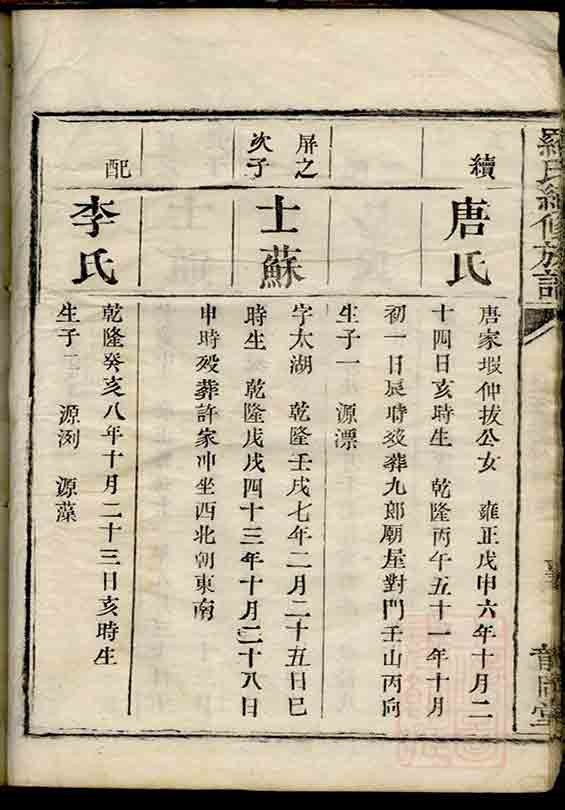 羅氏續修族譜
續
唐氏
唐家塅仲拔公女 雍正戊申六年十月二
十四日亥時生 乾隆丙午五十一年十月
初一日辰時歿葬九郎廟屋對門壬山丙向
生子一 源漂
屏之
次子
士蘇
字太湖 乾隆壬戌七年二月二十五日巳
時生 乾隆戊戌四十三年十月二十八日
申時歿葬許家冲坐西北朝東南
配
李氏
乾隆癸亥八年十月二十三日亥時生
生子二 源洌 源藻